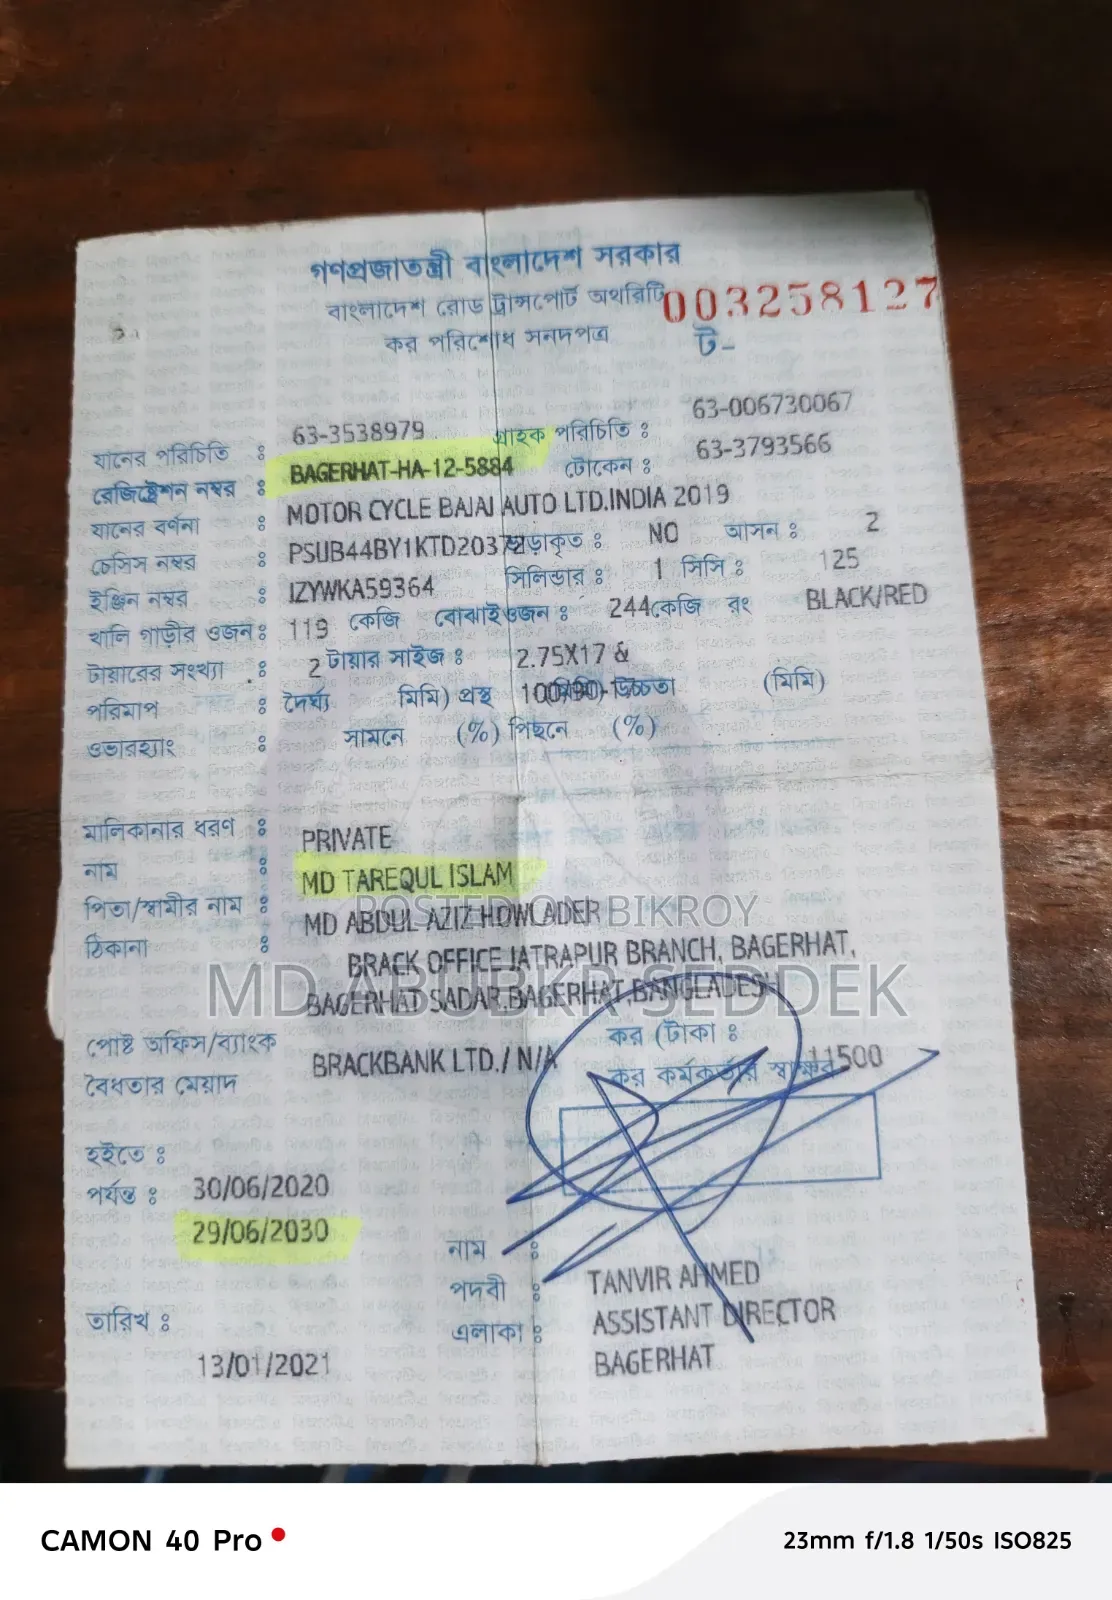 গণপ্রজাতন্ত্রী বাংলাদেশ সরকার
বাংলাদেশ রোড ট্রান্সপোর্ট অথরিটি 003258127
কর পরিশোধ সনদপত্র ট-
যানের পরিচিতি : 63-3538979 গ্রাহক পরিচিতি : 63-006730067
রেজিষ্ট্রেশন নম্বর : BAGERHAT-HA-12-5884 টোকেন : 63-3793566
যানের বর্ণনা : MOTOR CYCLE BAJAJ AUTO LTD.INDIA 2019
চেসিস নম্বর : PSUB44BY1KTD20372 ভাড়াকৃত : NO আসন : 2
ইঞ্জিন নম্বর : IZYWKA59364 সিলিন্ডার : 1 সিসি : 125
খালি গাড়ীর ওজন : 119 কেজি বোঝাই ওজন : 244 কেজি রং BLACK/RED
টায়ারের সংখ্যা : 2 টায়ার সাইজ : 2.75X17 &
পরিমাপ : দৈর্ঘ্য মিমি) প্রস্থ 100/90- উচ্চতা (মিমি)
ওভারহ্যাং : সামনে (%) পিছনে (%)
মালিকানার ধরণ : PRIVATE
নাম : MD TAREQUL ISLAM
পিতা/স্বামীর নাম : MD ABDUL AZIZ HOWLADER
POSTED ON BIKROY
ঠিকানা : BRACK OFFICE JATRAPUR BRANCH, BAGERHAT,
BAGERHAT SADAR,BAGERHAT,BANGLADESH
MD ABUBKR SEDDEK
পোষ্ট অফিস/ব্যাংক BRACKBANK LTD./ N/A কর (টাকা :
বৈধতার মেয়াদ কর কর্মকর্তার স্বাক্ষর 11500
হইতে :
পর্যন্ত : 30/06/2020
29/06/2030
নাম :
পদবী : TANVIR AHMED
তারিখ : এলাকা : ASSISTANT DIRECTOR
13/01/2021 BAGERHAT
CAMON 40 Pro 23mm f/1.8 1/50s ISO825